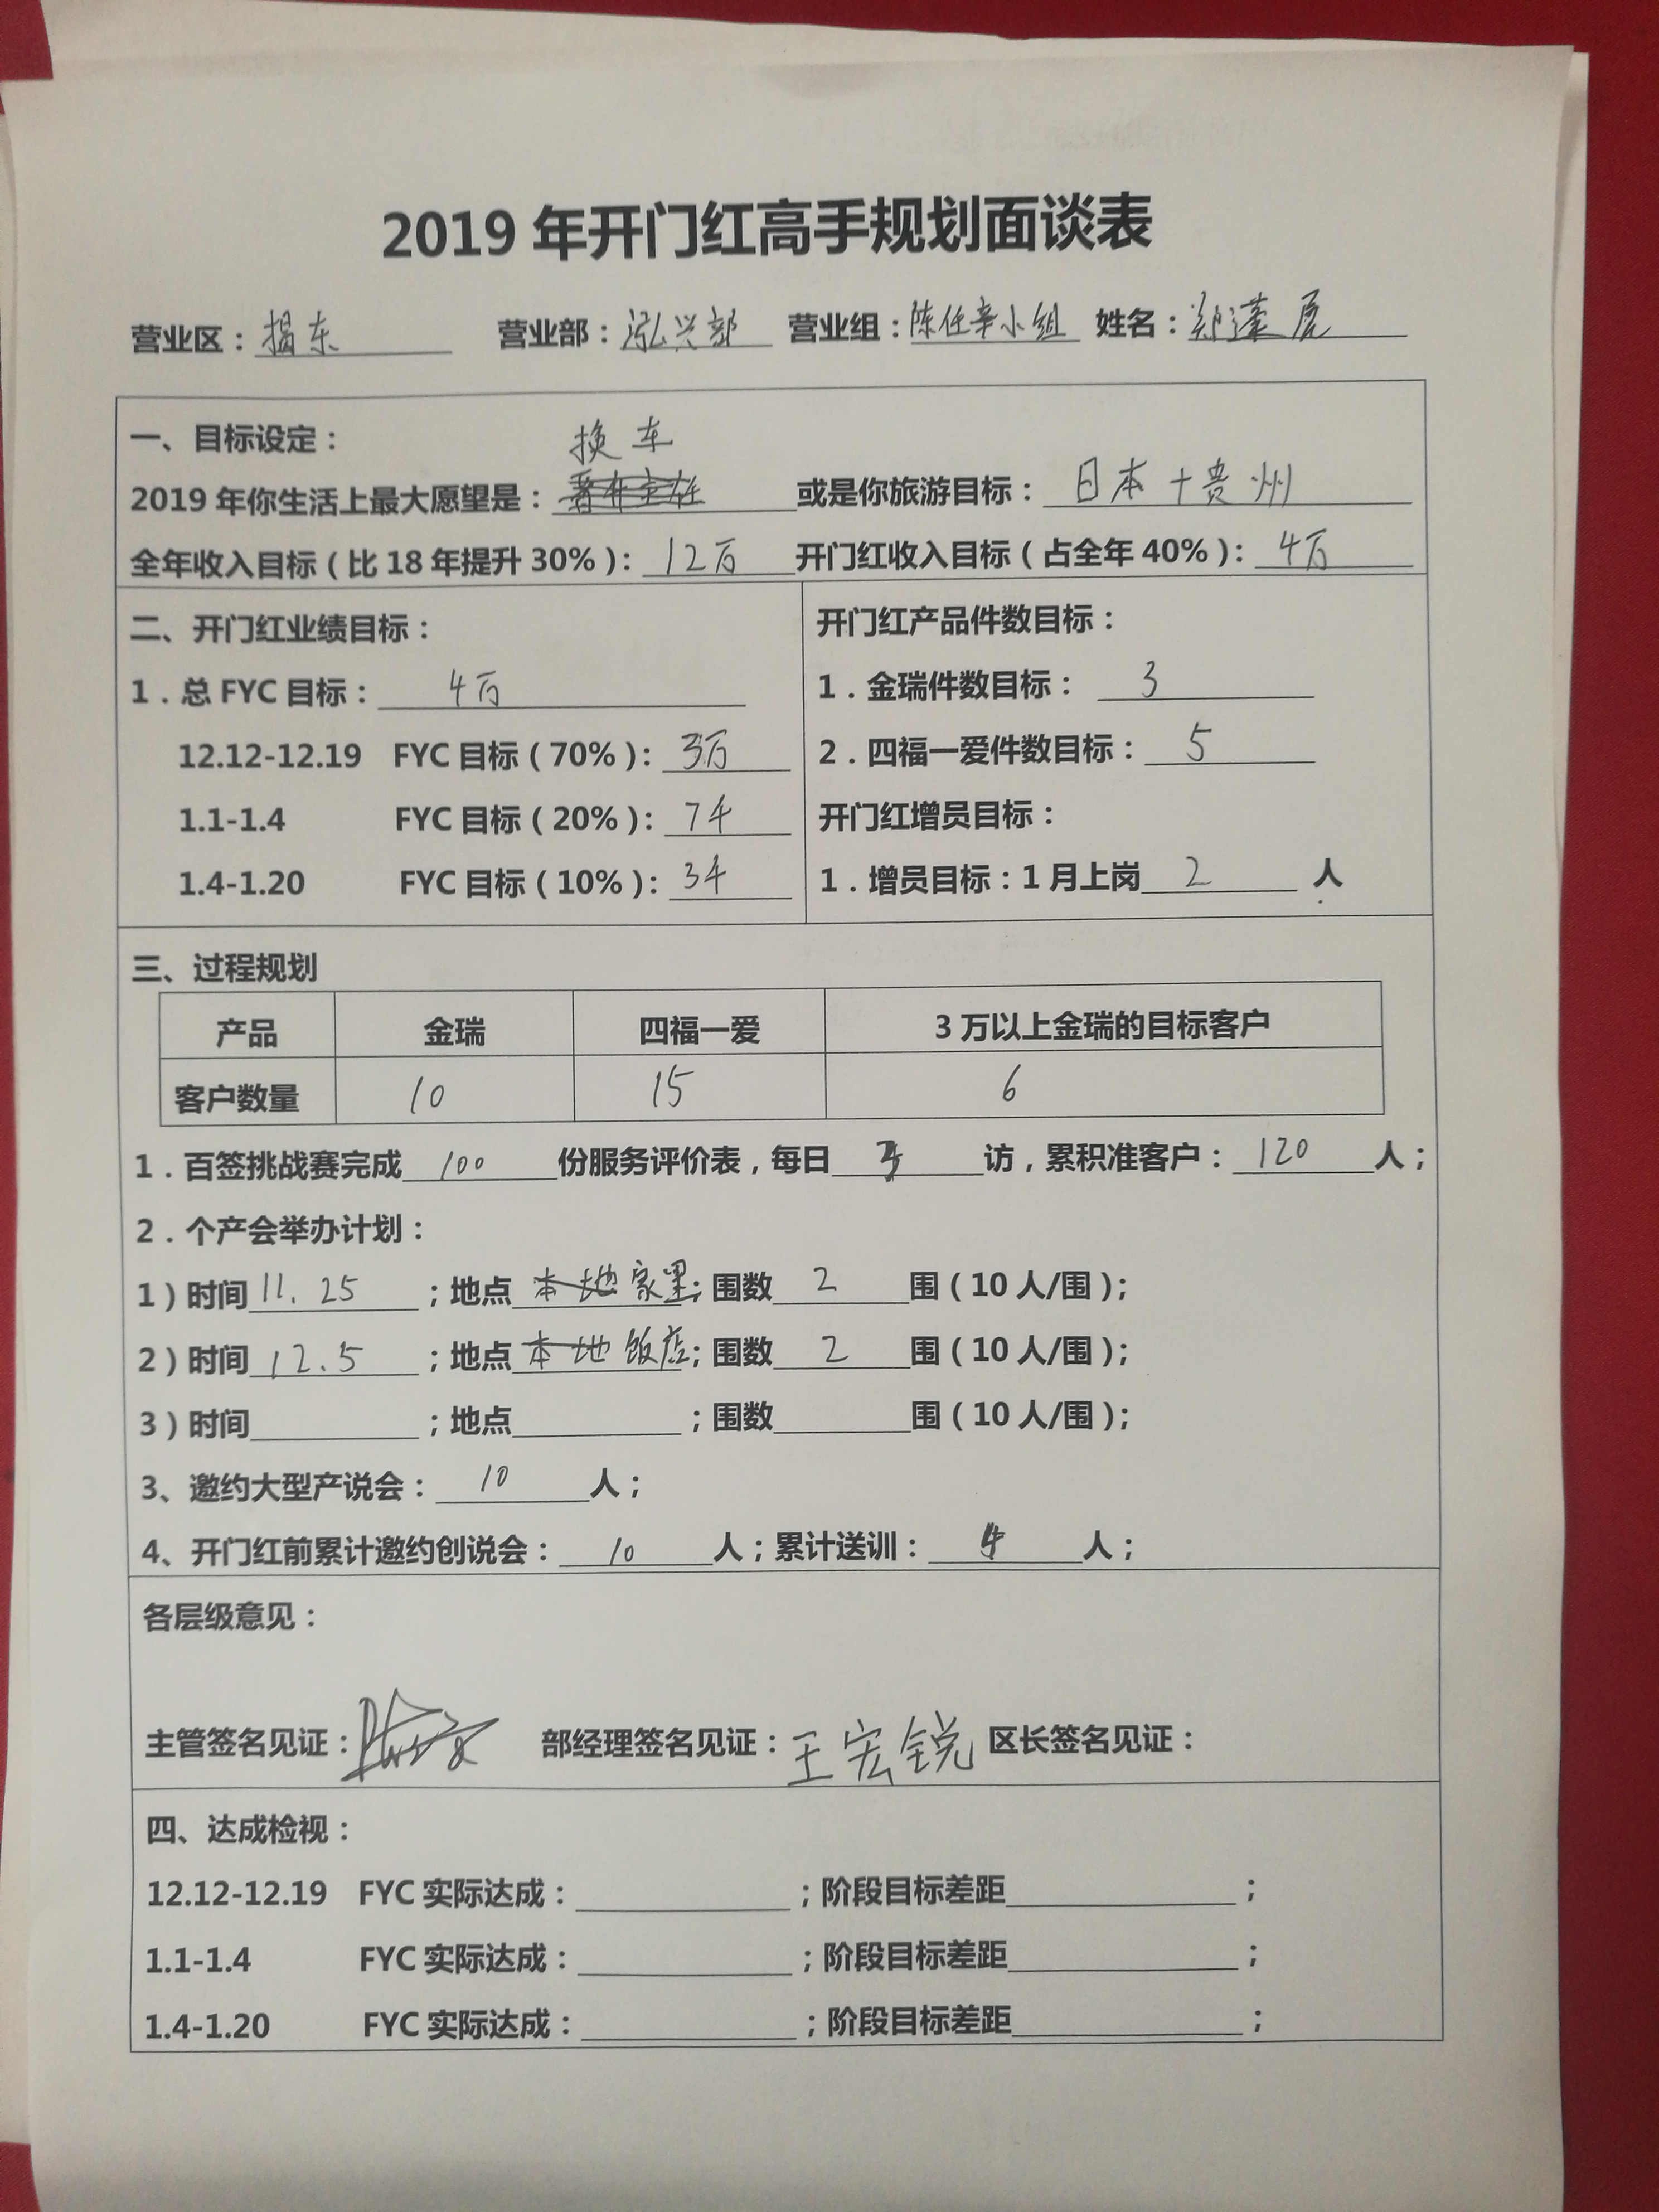 2019年开门红高手规划面谈表
营业区：揭东 营业部：泓兴部 营业组：陈任辛小组 姓名：郑蓬
一、目标设定： 换车
2019年你生活上最大愿望是： 或是你旅游目标：日本+贵州
全年收入目标（比18年提升30%）：12万 开门红收入目标（占全年40%）：4万
二、开门红业绩目标：
1．总FYC目标：4万
12.12-12.19 FYC目标（70%）：3万
1.1-1.4 FYC目标（20%）：7千
1.4-1.20 FYC目标（10%）：3千
开门红产品件数目标：
1．金瑞件数目标：3
2．四福一爱件数目标：5
开门红增员目标：
1．增员目标：1月上岗2人
三、过程规划
产品 金瑞 四福一爱 3万以上金瑞的目标客户
客户数量 10 15 6
1．百签挑战赛完成100份服务评价表，每日 访，累积准客户：120人；
2．个产会举办计划：
1）时间11.25；地点本地家里；围数2围（10人/围）；
2）时间12.5；地点本地饭店；围数2围（10人/围）；
3）时间 ；地点 ；围数 围（10人/围）；
3、邀约大型产说会：10人；
4、开门红前累计邀约创说会：10人；累计送训：4人；
各层级意见：
主管签名见证： 部经理签名见证：王宏锐 区长签名见证：
四、达成检视：
12.12-12.19 FYC实际达成： ；阶段目标差距 ；
1.1-1.4 FYC实际达成： ；阶段目标差距 ；
1.4-1.20 FYC实际达成： ；阶段目标差距 ；